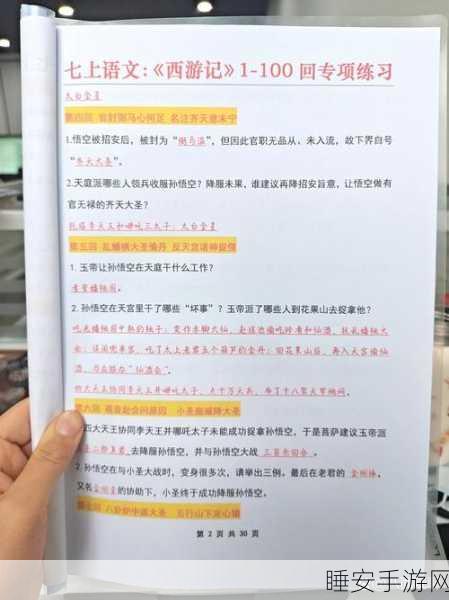 七上语文:《西游记》1-100 回专项练习
太白金星
第四回 官封弼马心何足 名注齐天意未宁
1.悟空被招安后,被封为“弼马温”,但因此官职无品从、未入流,故下界自号
“齐天大圣”。
2.天庭派哪些人领兵收服孙悟空?降服未果,谁建议再降招安旨意,让悟空做有
官无禄的齐天大圣?
托塔李天王和哪吒三太子;太白金星
第五回 乱蟠桃大圣偷丹 反天宫诸神捉怪
1. 玉帝让孙悟空在天庭干什么工作?
看管蟠桃园。
2. 孙悟空在天宫里干了哪些“坏事”?玉帝派了哪些人到花果山去捉拿他?
吃光蟠桃园中熟的桃子;变作赤脚大仙,赴瑶池偷吃珍肴和仙酒,扰乱蟠桃大
会;误闯兜率宫,吃了太上老君五个葫芦的金丹;回花果山后,再入天宫偷仙
酒,与众猴办“仙酒会”。
四大天王协同李天王并哪吒太子,点十万天兵,布了十八架天罗地网。
第六回 观音赴会问原因 小圣施威降大圣
四大天王协同李天王并哪吒太子未能成功捉拿孙悟空,于是菩萨建议玉帝派
二郎真君 去降服孙悟空,并与孙悟空大战 三百余回合。
2. 孙悟空在与小圣大战时,变身很多次,请举出三例。最后在老君的 金刚琢,
又名金刚套的协助下,小圣终于成功降服孙悟空。
第七回 八卦炉中逃大圣 五行山下定心猿
第 2 页 共 30 页
睡安手游网